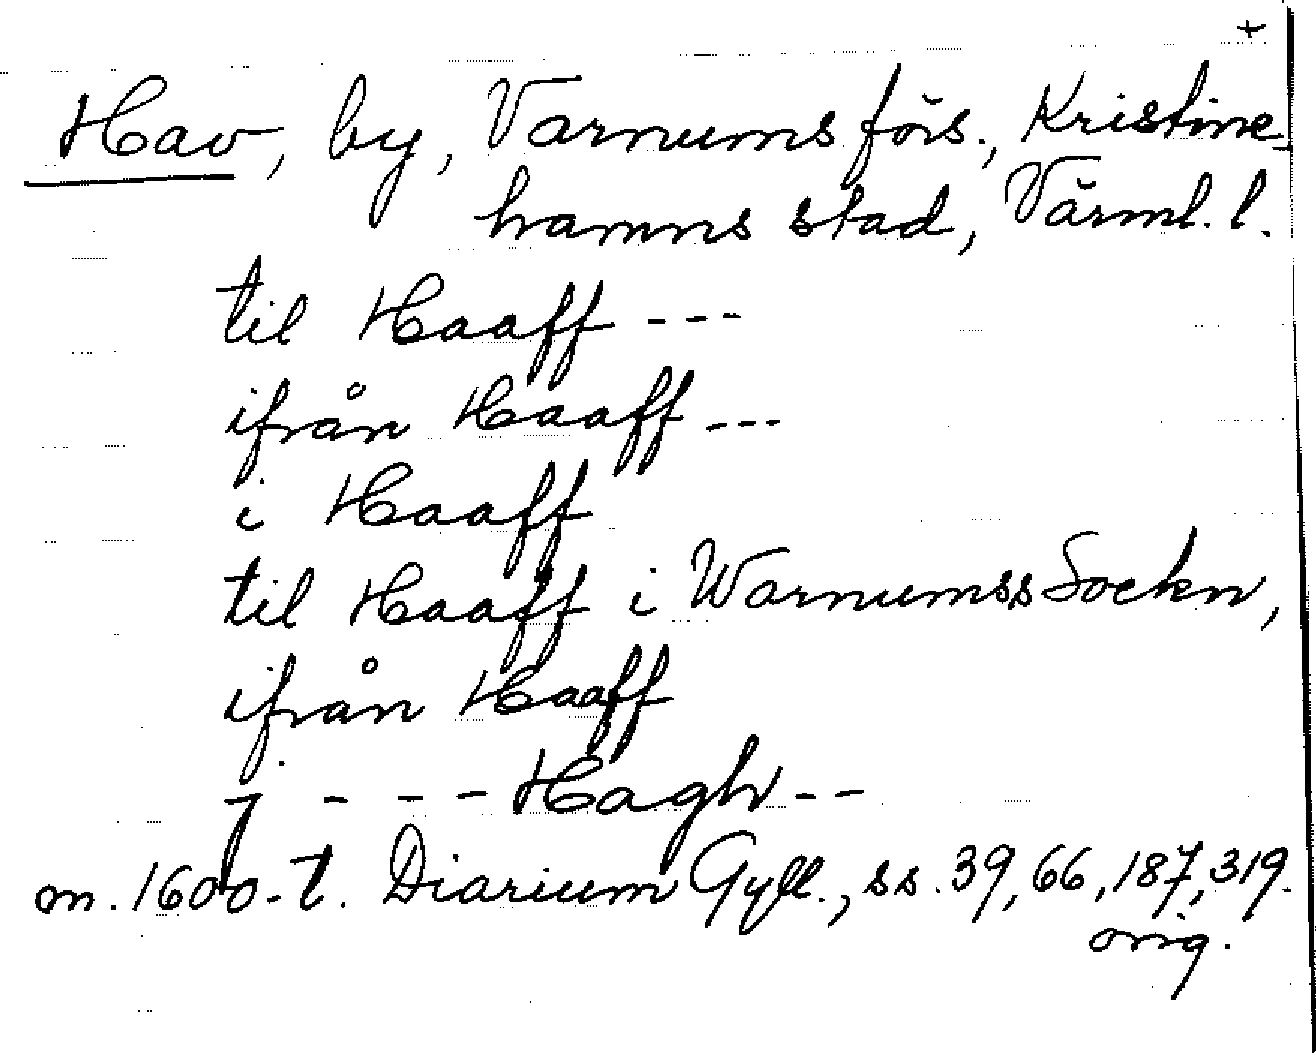 +
Hav, by, Varnums förs., Kristine-
hamns stad, Värml. l.
til Haaff ---
ifrån Haaff ---
i Haaff
til Haaff i Warnumss Sockn,
ifrån Haaff
j - - - Hagh - -
m. 1600-t. Diarium Gyll., ss. 39, 66, 187, 319.
orig.